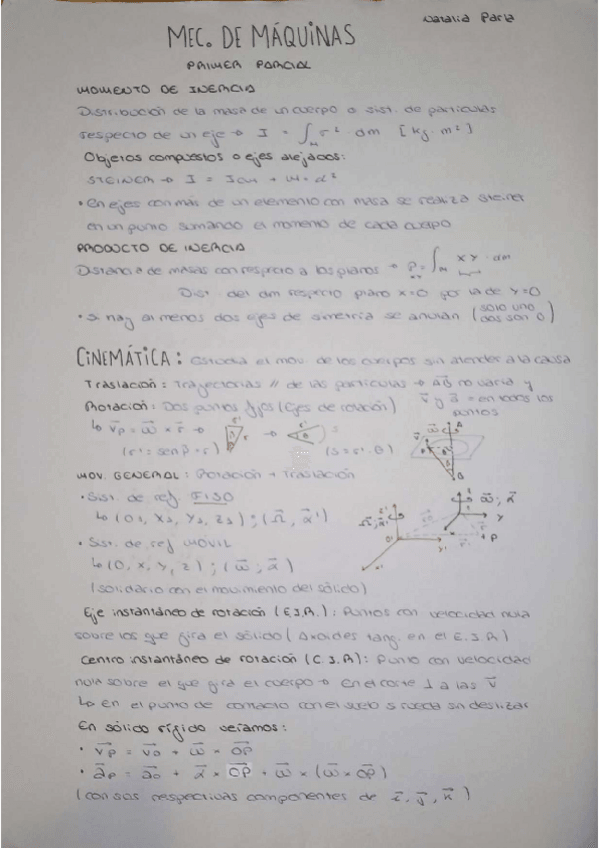 Natalia Parla
MEC. DE MÁQUINAS
PRIMER PARCIAL
MOMENTO DE INERCIA
Distribución de la masa de un cuerpo o sist. de partículas
respecto de un eje → I = ∫M r² · dm [kg · m²]
Objetos compuestos o ejes alejados:
STEINER → I = ICM + M · d²
• En ejes con más de un elemento con masa se realiza steiner
en un punto sumando el momento de cada cuerpo
PRODUCTO DE INERCIA
Distancia de masas con respecto a los planos → Pxy = ∫M xy · dm
Dist. del dm respecto plano x=0 por la de y=0
• Si hay al menos dos ejes de simetría se anulan (solo uno dos son 0)
CINEMÁTICA: Estudia el mov. de los cuerpos sin atender a la causa
Traslación: Trayectorias // de las partículas → AB no varía y
v y a = en todos los puntos
Rotación: Dos puntos fijos (Ejes de rotación)
↳ vp = ω × r →
(r' = sen β · r) (S = r' · θ)
MOV. GENERAL: Rotación + Traslación
• Sist. de ref. FIJO
↳ (O1, X1, Y1, Z1) ; (Ω, α')
• Sist. de ref MÓVIL
↳ (O, X, Y, Z) ; (ω, α)
(solidario con el movimiento del sólido)
Eje instantáneo de rotación (E.I.R.): Puntos con velocidad nula
sobre los que gira el sólido (Axoides tang. en el E.I.R)
Centro instantáneo de rotación (C.I.R): Punto con velocidad
nula sobre el que gira el cuerpo → En el corte ⊥ a las v
↳ en el punto de contacto con el suelo si rueda sin deslizar
En sólido rígido veríamos:
• vp = vo + ω × OP
• ap = ao + α × OP + ω × (ω × OP)
(con sus respectivas componentes de i, j, k)